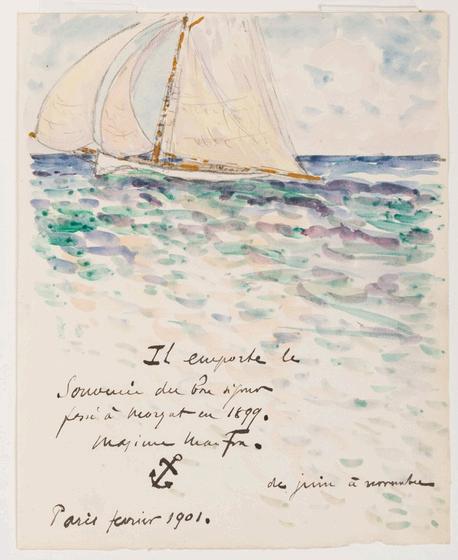 Il emporte le
Souvenir du Bon séjour
passé à Morgat en 1899.
Maxime Maufra.
de juin à novembre
Paris février 1901.